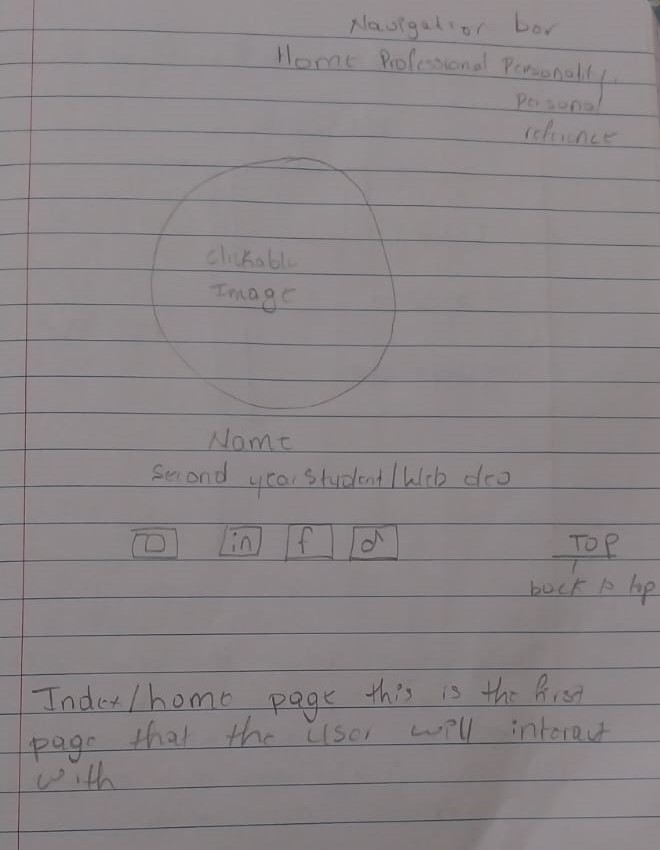 Navigation bar
Home Professional Personality
Personal
reference
Clickable
Image
Name
Second year student / Web dev
in f
TOP
back to top
Index/home page this is the first
page that the user will interact
with